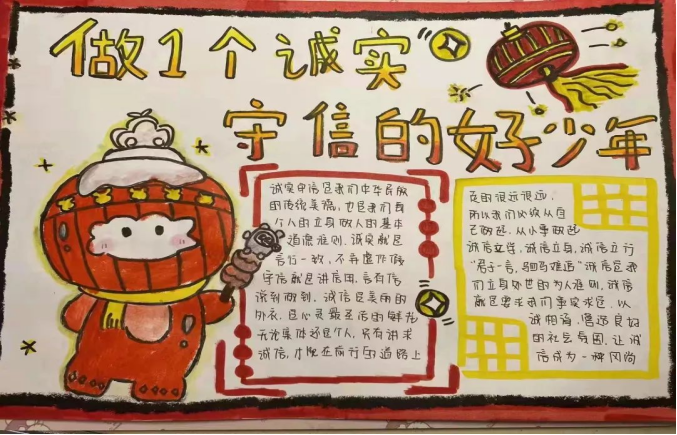 做1个诚实
守信的好少年
诚实守信是我们中华民族
的传统美德，也是我们每
个人的立身做人的基本
道德准则．诚实就是
言行一致，不弄虚作假
守信就是讲信用．言有信
说到做到．诚信是美丽的
外衣．是心灵最圣洁的鲜花
无论集体还是个人，只有讲求
诚信，才能在前行的道路上
走的很远很远．
所以我们必须从自
己做起．从小事做起
诚信立学，诚信立身，诚信立行
"君子一言，驷马难追"诚信是我
们立身处世的为人准则，诚信
就是要求我们事实求是．以
诚相待，营造良好
的社会氛围，让诚
信成为一种风尚